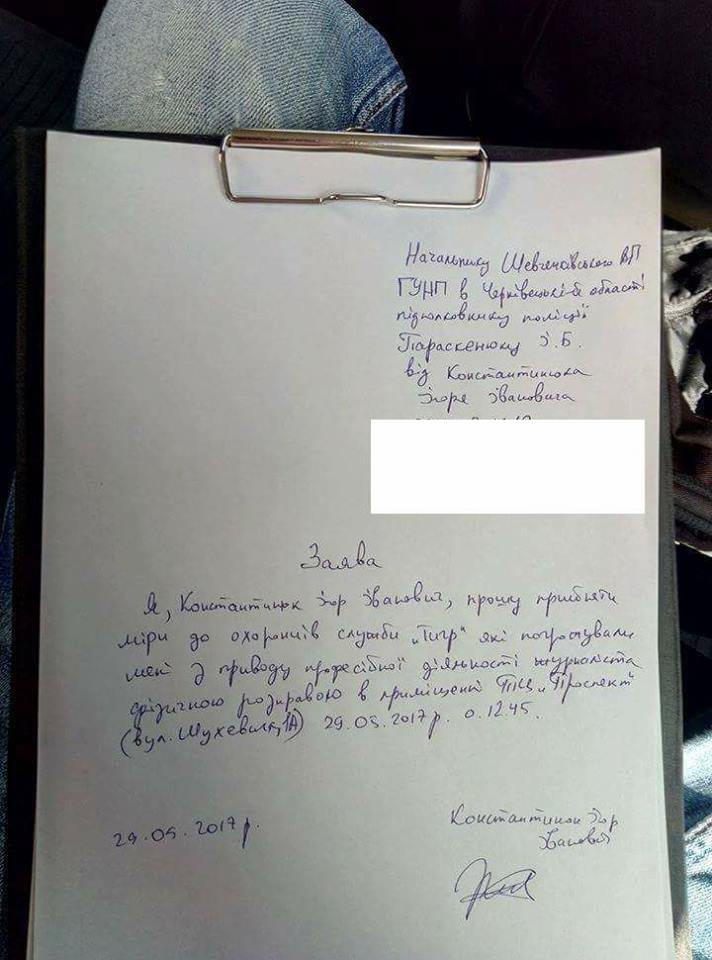 Начальнику Шевченківського ВП
ГУНП в Чернівецькій області
підполковнику поліції
Параскенюку І.Б.
від Константинюка
Ігоре Івановича
Заява
Я, Константинюк Ігор Іванович, прошу прийняти
міри до охоронців служби „Тигр" які погрожували
мені з приводу професійної діяльності журналіста
фізичною розправою в приміщенні ТЦ „Проспект"
(вул. Шухевича, 1А) 29.05.2017 р. о. 12.45.
29.05.2017 р.
Константинюк Ігор